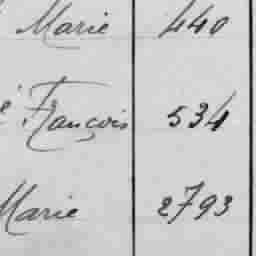 Marie 440
é François 534
Marie 2793